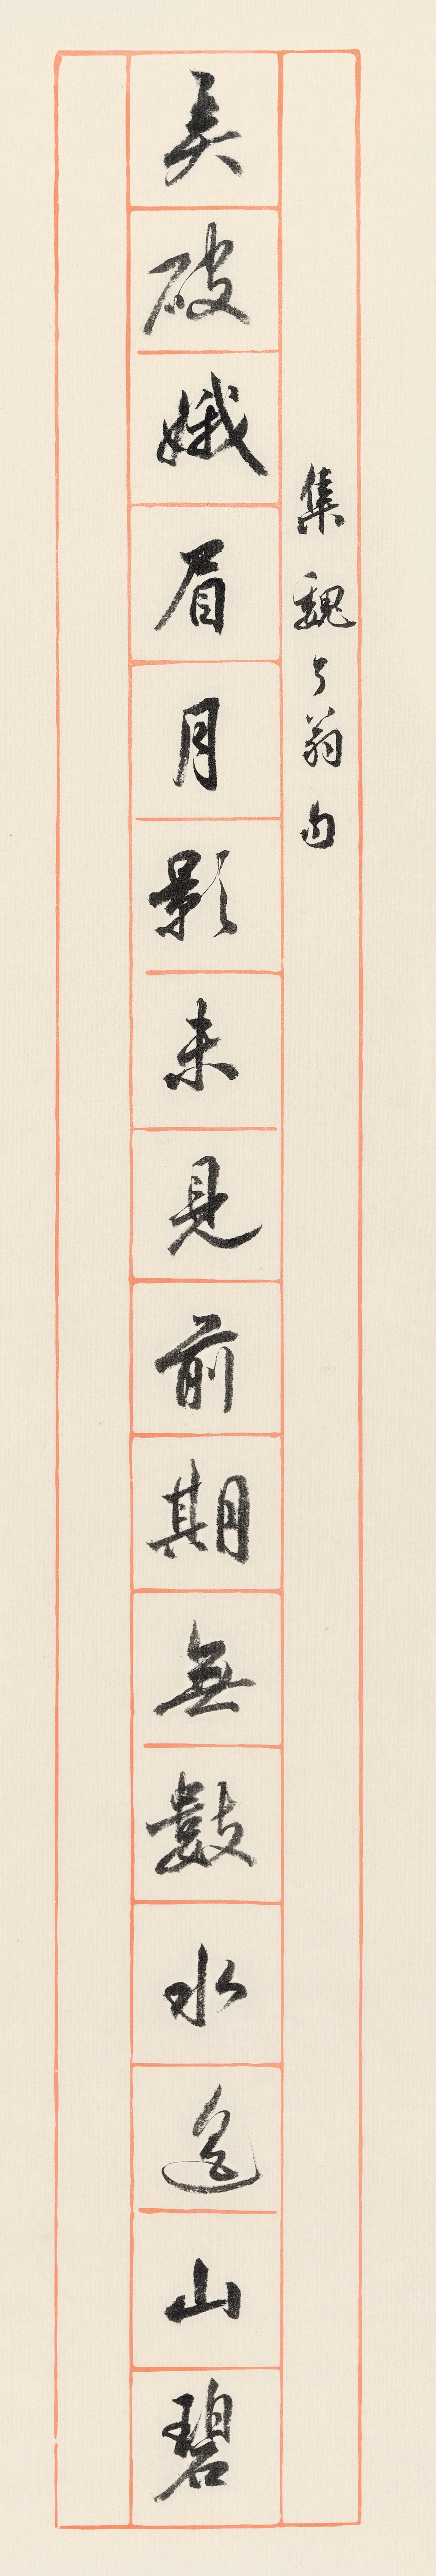 集魏了翁句
笑破娥眉月影未見前期無數水遙山碧